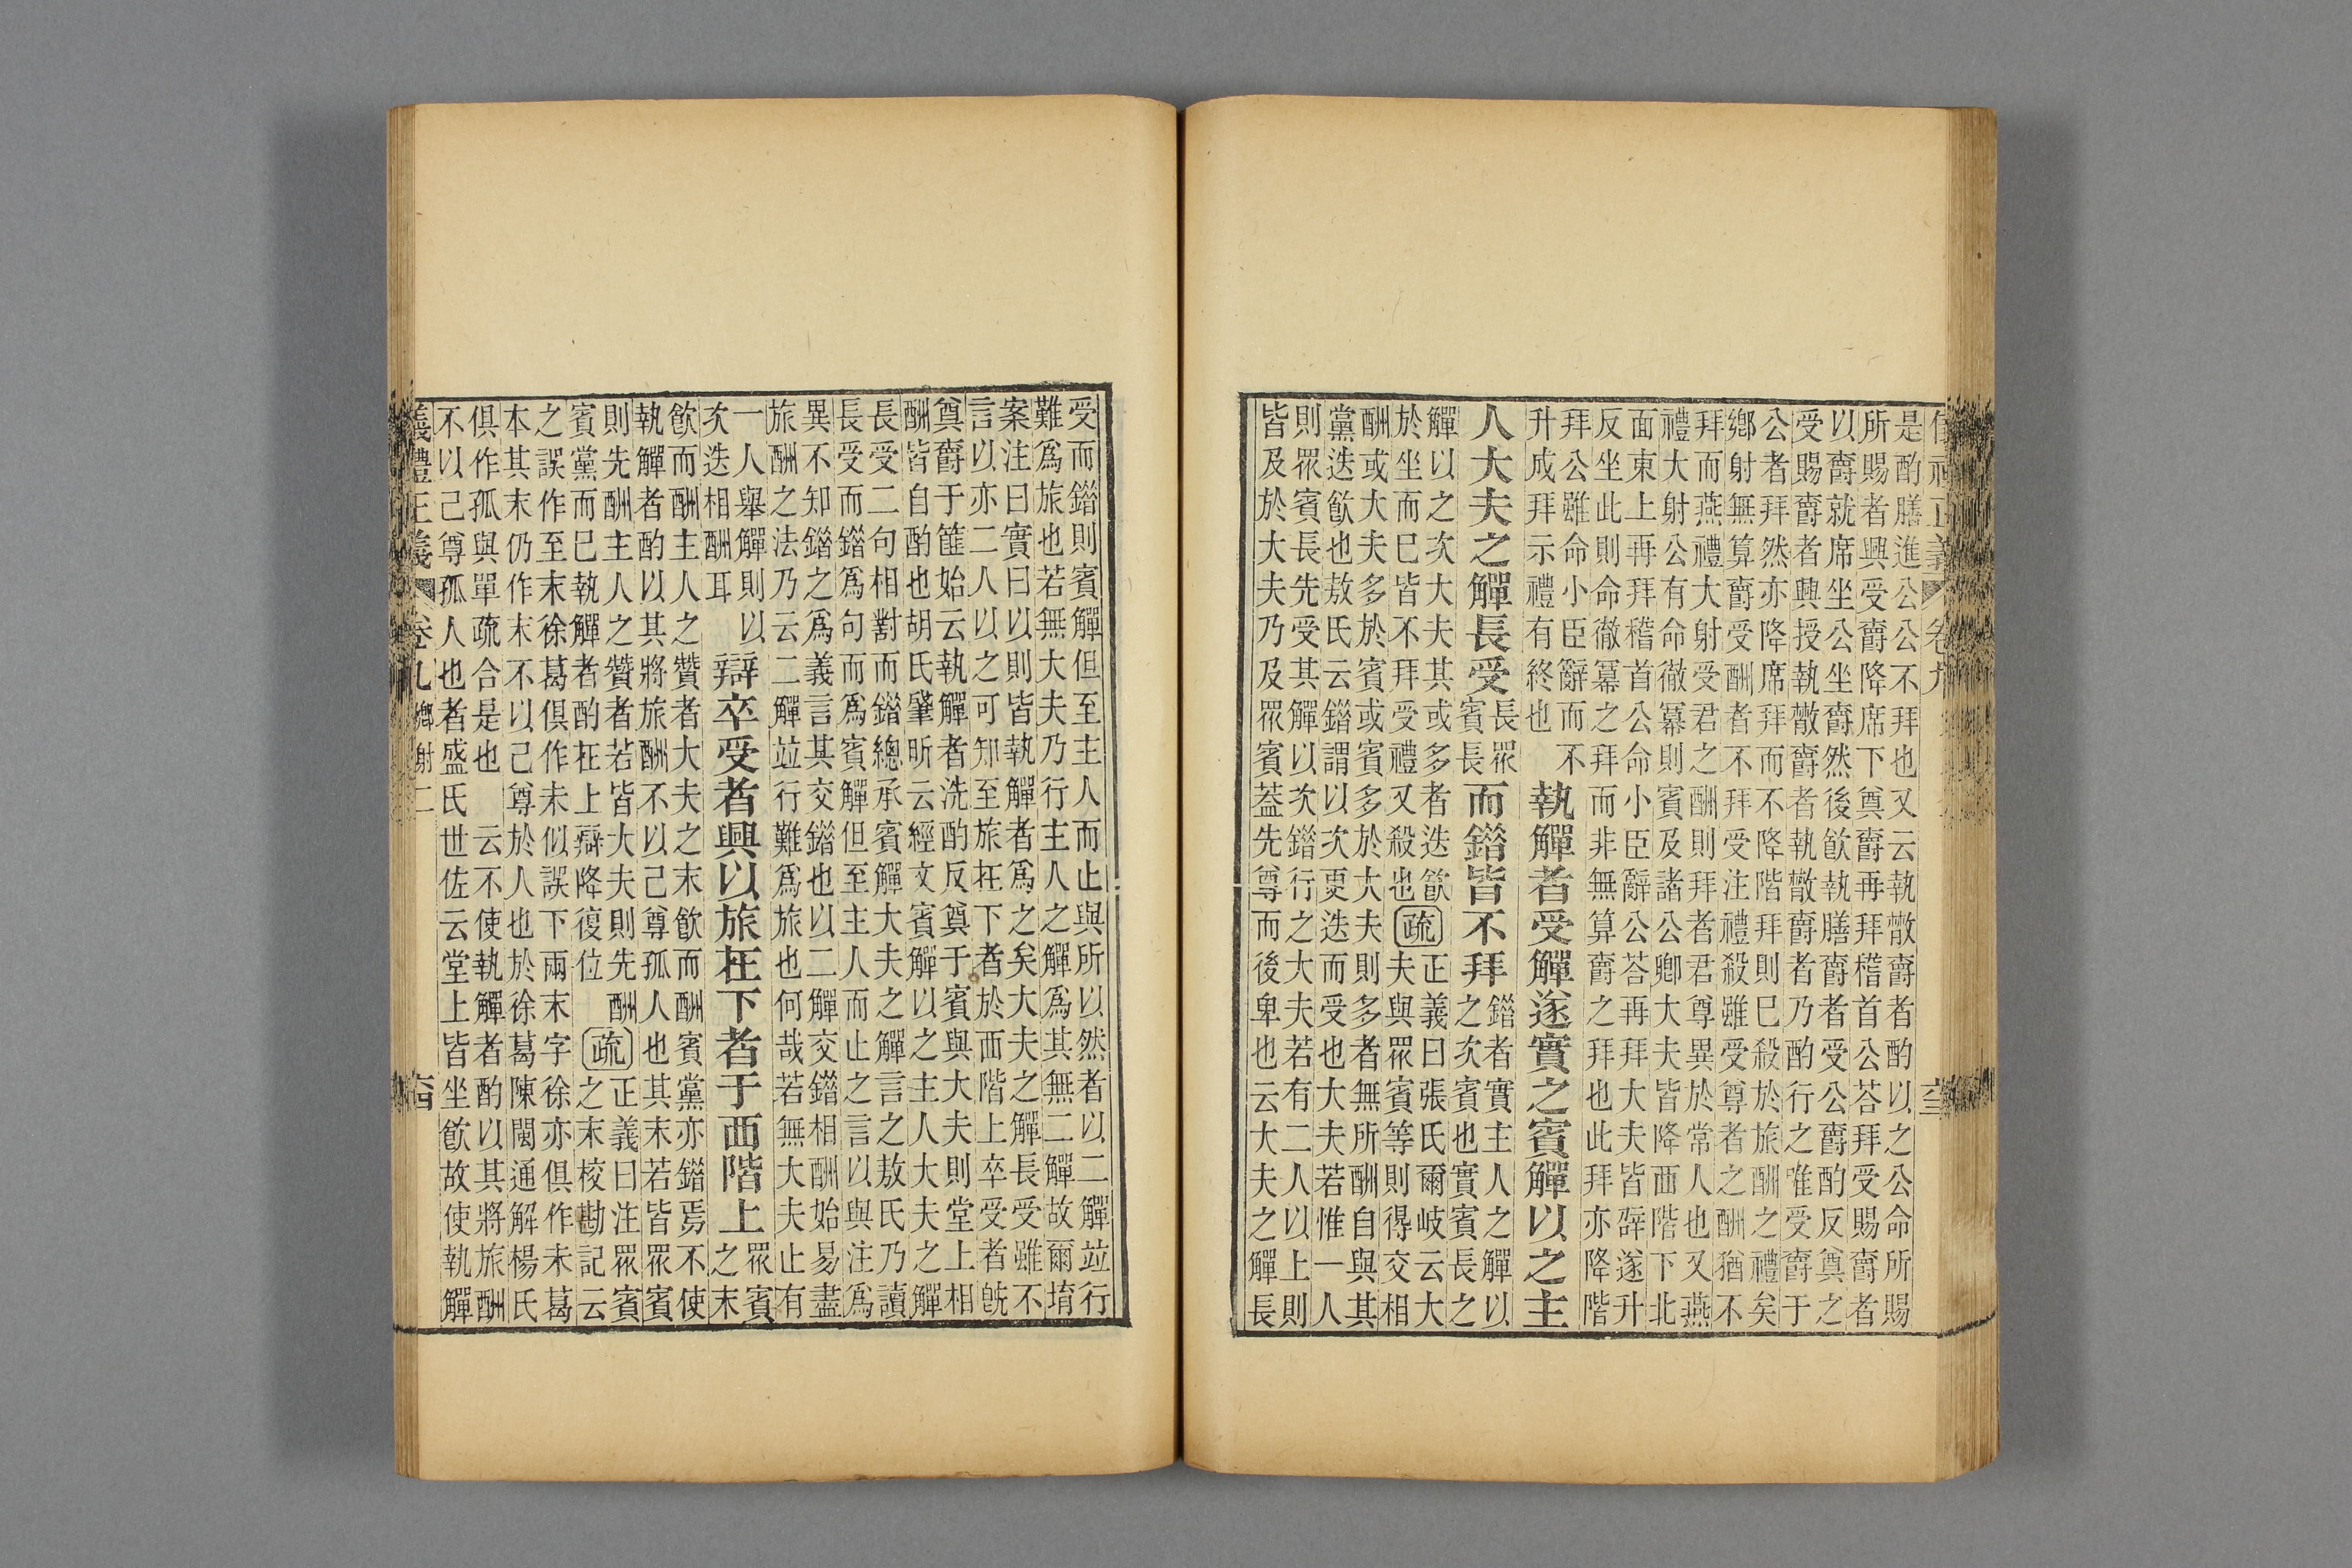 是酌膳進公公不拜也又云執散爵者酌以之公命所賜
所賜者興受爵降席下奠爵再拜稽首公荅拜受賜爵者
以爵就席坐公坐爵然後飲執膳爵者受公爵酌反奠之
受賜爵者興授執散爵者執散爵者乃酌行之唯受爵于
公者拜然亦降席拜而不降階拜則巳殺於旅酬之禮矣
鄉射無算爵受酬者不拜受注禮殺雖受尊者之酬猶不
拜而燕禮大射受君之酬則拜者君尊異於常人也又燕
禮大射公有命徹冪則賓及諸公卿大夫皆降西階下北
面東上再拜稽首公命小臣辭公荅再拜大夫皆辟遂升
反坐此則命徹冪之拜而非無算爵之拜也此拜亦降階
拜公雖命小臣辭而不
升成拜示禮有終也
執觶者受觶遂實之賓觶以之主
人大夫之觶長受
長眾
賓長
而錯皆不拜
錯者實主人之觶以
之次賓也實賓長之
觶以之次大夫其或多者迭飲
於坐而巳皆不拜受禮又殺也
疏
正義曰張氏爾岐云大
夫與眾賓等則得交相
酬或大夫多於賓或賓多於大夫則多者無所酬自與其
黨迭飲也敖氏云錯謂以次更迭而受也大夫若惟一人
則眾賓長先受其觶以次錯行之大夫若有二人以上則
皆及於大夫乃及眾賓蓋先尊而後卑也云大夫之觶長
受而錯則賓觶但至主人而止與所以然者以二觶竝行
難為旅也若無大夫乃行主人之觶為其無二觶故爾堉
案注曰實曰以則皆執觶者為之矣大夫之觶長受雖不
言以亦二人以之可知至旅在下者於西階上卒受者旣
奠爵于篚始云執觶者洗酌反奠于賓與大夫則堂上相
酬皆自酌也胡氏肇昕云經文賓觶以之主人大夫之觶
長受二句相對而錯總承賓觶大夫之觶言之敖氏乃讀
長受而錯為句而為賓觶但至主人而止之言以與注為
異不知錯之為義言其交錯也以二觶交錯相酬始易盡
旅酬之法乃云二觶竝行難為旅也何哉若無大夫止有
一人舉觶則以
次迭相酬耳
辯卒受者興以旅在下者于西階上
眾賓
之末
飲而酬主人之贊者大夫之末飲而酬賓黨亦錯焉不使
執觶者酌以其將旅酬不以己尊孤人也其末若皆眾賓
則先酬主人之贊者若皆大夫則先酬
賓黨而巳執觶者酌在上辯降復位
疏
正義曰注眾賓
之末校勘記云
之誤作至末徐葛俱作未似誤下兩末字徐亦俱作未葛
本其末仍作末不以己尊於人也於徐葛陳閩通解楊氏
俱作孤與單疏合是也　云不使執觶者酌以其將旅酬
不以己尊孤人也者盛氏世佐云堂上皆坐飲故使執觶